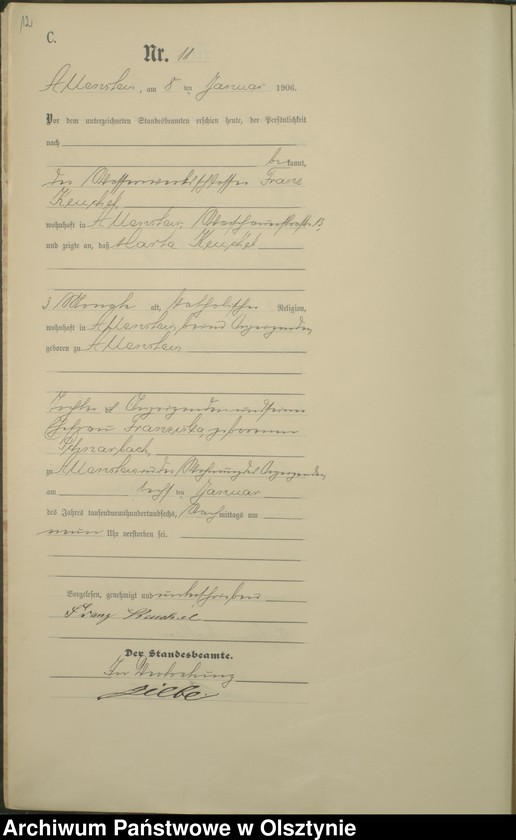 12
C.
Nr. 11
Allenstein, am 8 ten Januar 1906.
Vor dem unterzeichneten Standesbeamten erschien heute, der Persönlichkeit
nach
bekannt,
der Franz
Keuchel,
wohnhaft in Allenstein, 13,
und zeigte an, daß Marta Keuchel
3 Monate alt, katholischer Religion,
wohnhaft in Allenstein, beim Anzeigenden
geboren zu Allenstein
Tochter des Anzeigenden und seiner
Ehefrau Franziska, geborenen
zu Allenstein in der Wohnung des Anzeigenden
am ten Januar
des Jahres tausendneunhundertundsechs, Nachmittags um
neun Uhr verstorben sei.
Vorgelesen, genehmigt und unterschrieben
Franz Keuchel
Der Standesbeamte.
In Vertretung
Archiwum Państwowe w Olsztynie